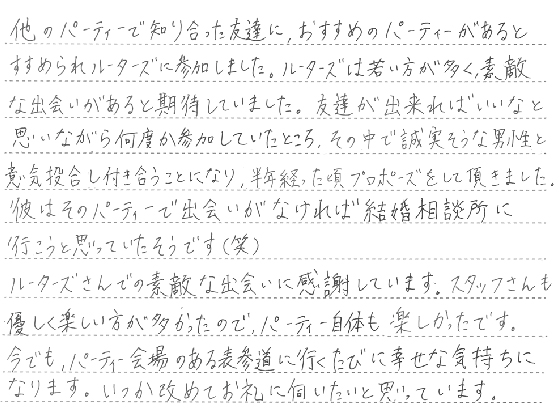 他のパーティーで知り合った友達に、おすすめのパーティーがあると
すすめられルーターズに参加しました。ルーターズは若い方が多く、素敵
な出会いがあると期待していました。友達が出来ればいいなと
思いながら何度か参加していたところ、その中で誠実そうな男性と
意気投合し付き合うことになり、半年経った頃プロポーズをして頂きました。
彼はそのパーティーで出会いがなければ結婚相談所に
行こうと思っていたそうです(笑)
ルーターズさんでの素敵な出会いに感謝しています。スタッフさんも
優しく楽しい方が多かったので、パーティー自体も楽しかったです。
今でも、パーティー会場のある表参道に行くたびに幸せな気持ちに
なります。いつか改めてお礼に伺いたいと思っています。